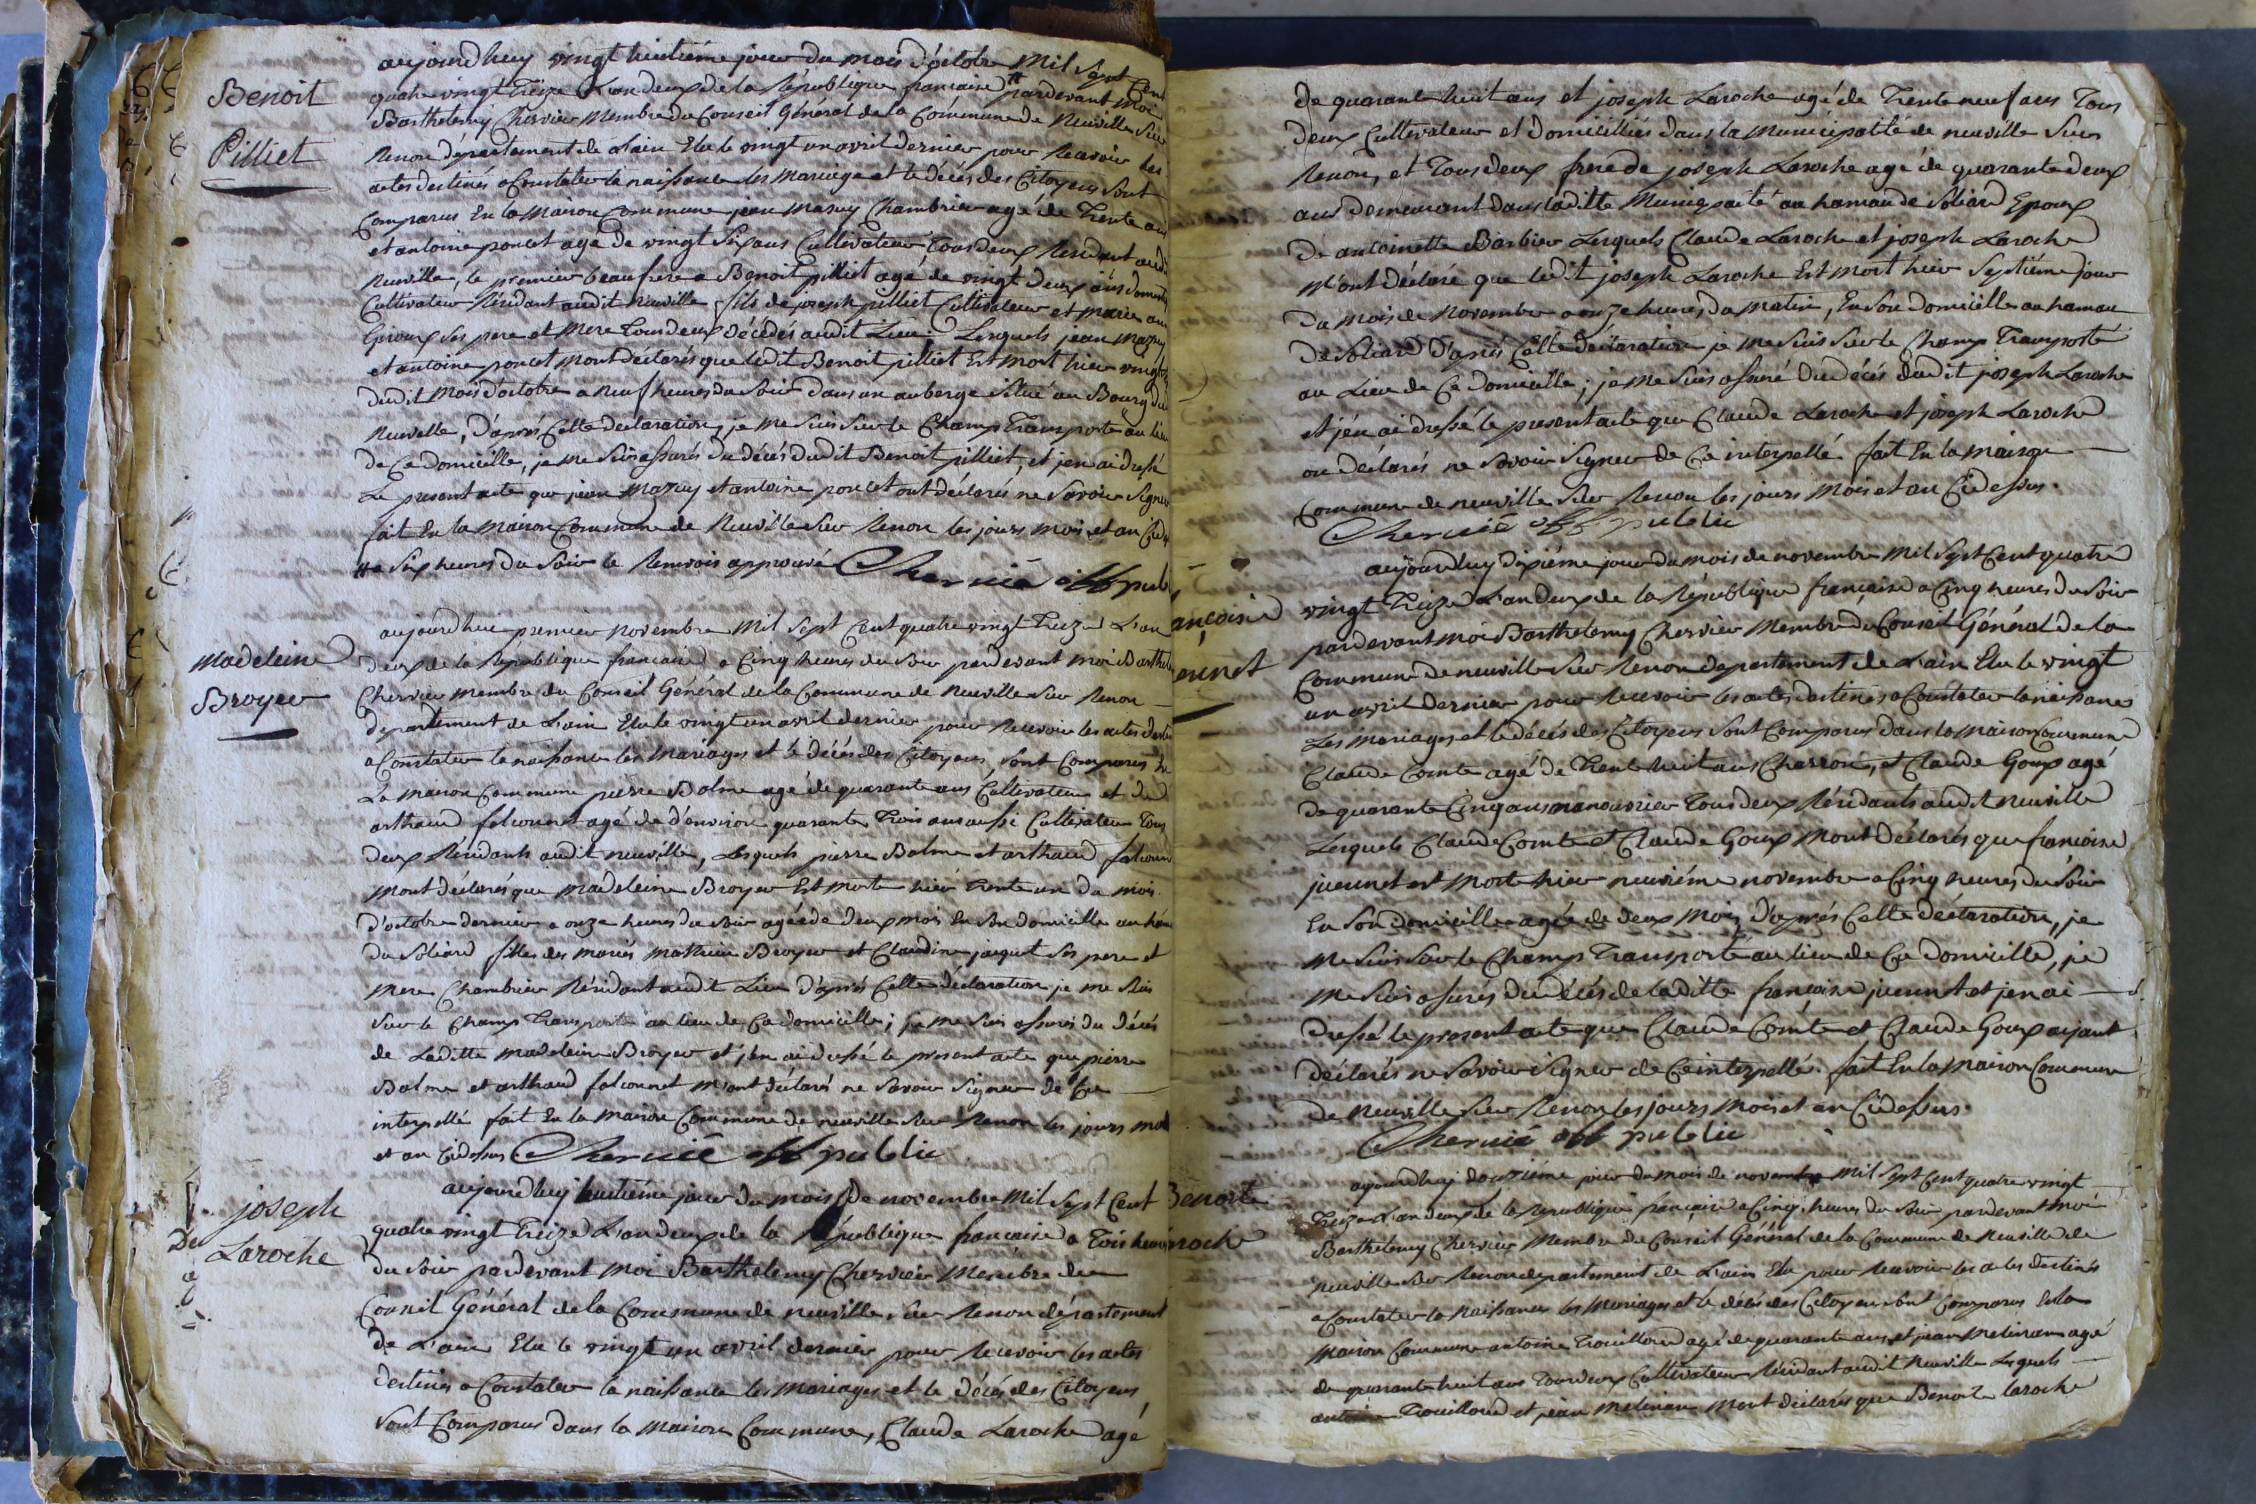 Benoit
Pilliet
aujourd'huy vingt huitiéme jour du mois d'octobre Mil Sept Cent
quatre vingt Treize L'an deux de la République francaise # pardevant Moi
Barthelemy Chervier Membre du Conseil Général de la Commune de Neuville Sur
Renon département de L'ain Elu le vingt un avril dernier pour Recevoir les
actes destinés a Constater la naissance les Mariage et le décés des Citoyens Sont
Comparus En la Maison Commune jean Mazuy Chambrier agé de Trente ans
et antoine poncet agé de vingt Six ans Cultivateur Tous deux Residant audit
Neuville, le premier beau frere a Benoit pilliet agé de vingt deux ans
Cultivateur Résidant audit neuville fils de joseph pilliet Cultivateur et marie
Giroux Ses pere et Mere Tous deux décédés audit Lieu. Lesquels jean Mazuy
et antoine poncet Mont déclarés que ledit Benoit pilliet Est Mort hier vingt
dudit Mois d'octobre a Neuf heures du Soir dans un auberge Situé au Bourg du
Neuville, d'aprés Cette declaration, je Me Suis Sur le Champ Transporte au lieu
de Ce domicille, je Me Suis assurés du décés dudit Benoit pilliet, et jen ai dressé
Le present acte que jean Mazuy et antoine poncet ont déclarés ne Savoir Signer
fait En la Maison Commune de Neuville Sur Renon les jours mois et an Cid
# a Six heures du Soir le Renvois approuvé Chervié off pub
Madeleine
Broyer
aujourdhui premier Novembre Mil Sept Cent quatre vingt Treize L'an
deux de la République francaise a Cinq heures du Soir pardevant moi Barthele
Chervier Membre du Conseil Général de la Commune de Neuville Sur Renon
département de L'ain Elu le vingt un avril dernier pour Recevoir les actes destin
a Constater la naissance les Mariages et le décés des Citoyens, Sont Comparus En
La Maison Commune pierre Balme agé de quarante ans Cultivateur et
arthaud falconnet agé de d'environ quarante Trois ans aussi Cultivateur Tous
deux Résidants audit neuville, Lesquels pierre Balme et arthaud falconn
Mont déclarés que Madeleine Broyer Est Morte hier Trente un du mois
D'octobre dernier a onze heures du Soir agée de deux mois En Son domicille au ham
du Soliard filles des mariés Mathieu Broyer et Claudine jaquet Ses pere et
Mere Chambrier Résidant audit Lieu d'aprés Cette déclaration je me Suis
Sur le Champ Transporté au lieu de Ce domicille; je me Suis assurés du décés
de Laditte Madeleine Broyer et j'en ai dressé le present acte que pierre
Balme et arthaud falconnet m'ont déclaré ne Savoir Signer de Ce
interpellé fait En la Maison Commune de neuville Sur Renon les jours mois
et an Cidessus Chervié off public
joseph
Laroche
aujourd'huy huitiéme jour du mois de novembre Mil Sept Cent
quatre vingt Treize L'an deux de la République francaise a Trois heures
du Soir pardevant Moi Barthelemy Chervier Membre du
Conseil Général de la Commune de neuville Sur Renon département
de L'ain Elu le vingt un avril dernier pour Recevoir les actes
destinés a Constater la naissance les Mariages et le décés des Citoyens
Sont Comparus dans la Maison Commune, Claude Laroche agé
de quarante huit ans et joseph Laroche agé de Trente neuf ans Tous
deux Cultivateur et domicilliés dans la Municipalité de neuville Sur
Renon, et Tous deux frere de joseph Laroche agé de quarante deux
ans demeurant dans laditte Municipalité au hamau de Soliard Epoux
de antoinette Barbier Lesquels Claude Laroche et joseph Laroche
M'ont déclaré que ledit joseph Laroche Est Mort hier Septiéme jour
du Mois de Novembre a onze heures du Matin, En Son domicille au hamau
de Soliard D'aprés Cette déclaration je me Suis Sur le Champ Transporté
au Lieu de Ce Domicille; je Me Suis assuré du décés dudit joseph Laroche
et jén ai dressé le present acte que Claude Laroche et joseph Laroche
on déclarés ne Savoir Signer de Ce interpellé fait En la Maison
Commune de neuville Sur Renon les jours Mois et an Cidessus.
Chervié off public
ançoise
uenet
aujourd'huy dixiéme jour du mois de novembre Mil Sept Cent quatre
vingt Treize L'an deux de la République française a Cinq heures du Soir
pardevant Moi Barthelemy Chervier Membre du Conseil Général de la
Commune de neuville Sur Renon departement de L'ain Elu le vingt
un avril dernier pour Recevoir les actes destinés a Constater la naissance
Les Mariages et le décés des Citoyens Sont Comparus dans la Maison Commune
Claude Comte agé de Trente huit ans Charron, et Claude Goux agé
de quarante Cinq ans manouvrier Tous deux Résidants audit neuville
Lesquels Claude Comte et Claude Goux Mont déclarés que francoise
juenet est Morte hier neuviéme novembre a Cinq heures du Soir
En Son domicille agée de deux Mois, d'aprés Cette déclaration, je
Me Suis Sur le Champ Transporté au lieu de Ce domicille, je
Me Suis assurés du décés de laditte françoise juenet et jen ai
dressé le present acte que Claude Comte et Claude Goux ayant
déclarés ne Savoir Signer de Ce interpellé. fait En la Maison Commune
de Neuville Sur Renon les jours Mois et an Cidessus.
Chervié off public
Benoite
aroche
aujourdhuy douziéme jour du mois de novembre Mil Sept Cent quatre vingt
Treize L'an deux de la République française a Cinq heures du Soir pardevant Moi
Barthelemy Chervier Membre du Conseil Général de la Commune de Neuville de
Neuville Sur Renon departement de L'ain Elu pour Recevoir les actes destinés
a Constater la Naissances les Mariages et le décés des Citoyens Sont Comparus En la
Maison Commune antoine Trouilloud agé de quarante ans et jean Melinan agé
de quarante huit ans Tous deux Cultivateur Résidant audit Neuville Lesquels
antoine Trouilloud et jean Melinan Mont déclarés que Benoite laroche